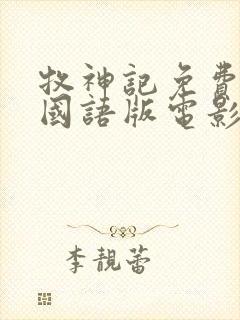 牧神記免費
國語版電影
李靚蕾